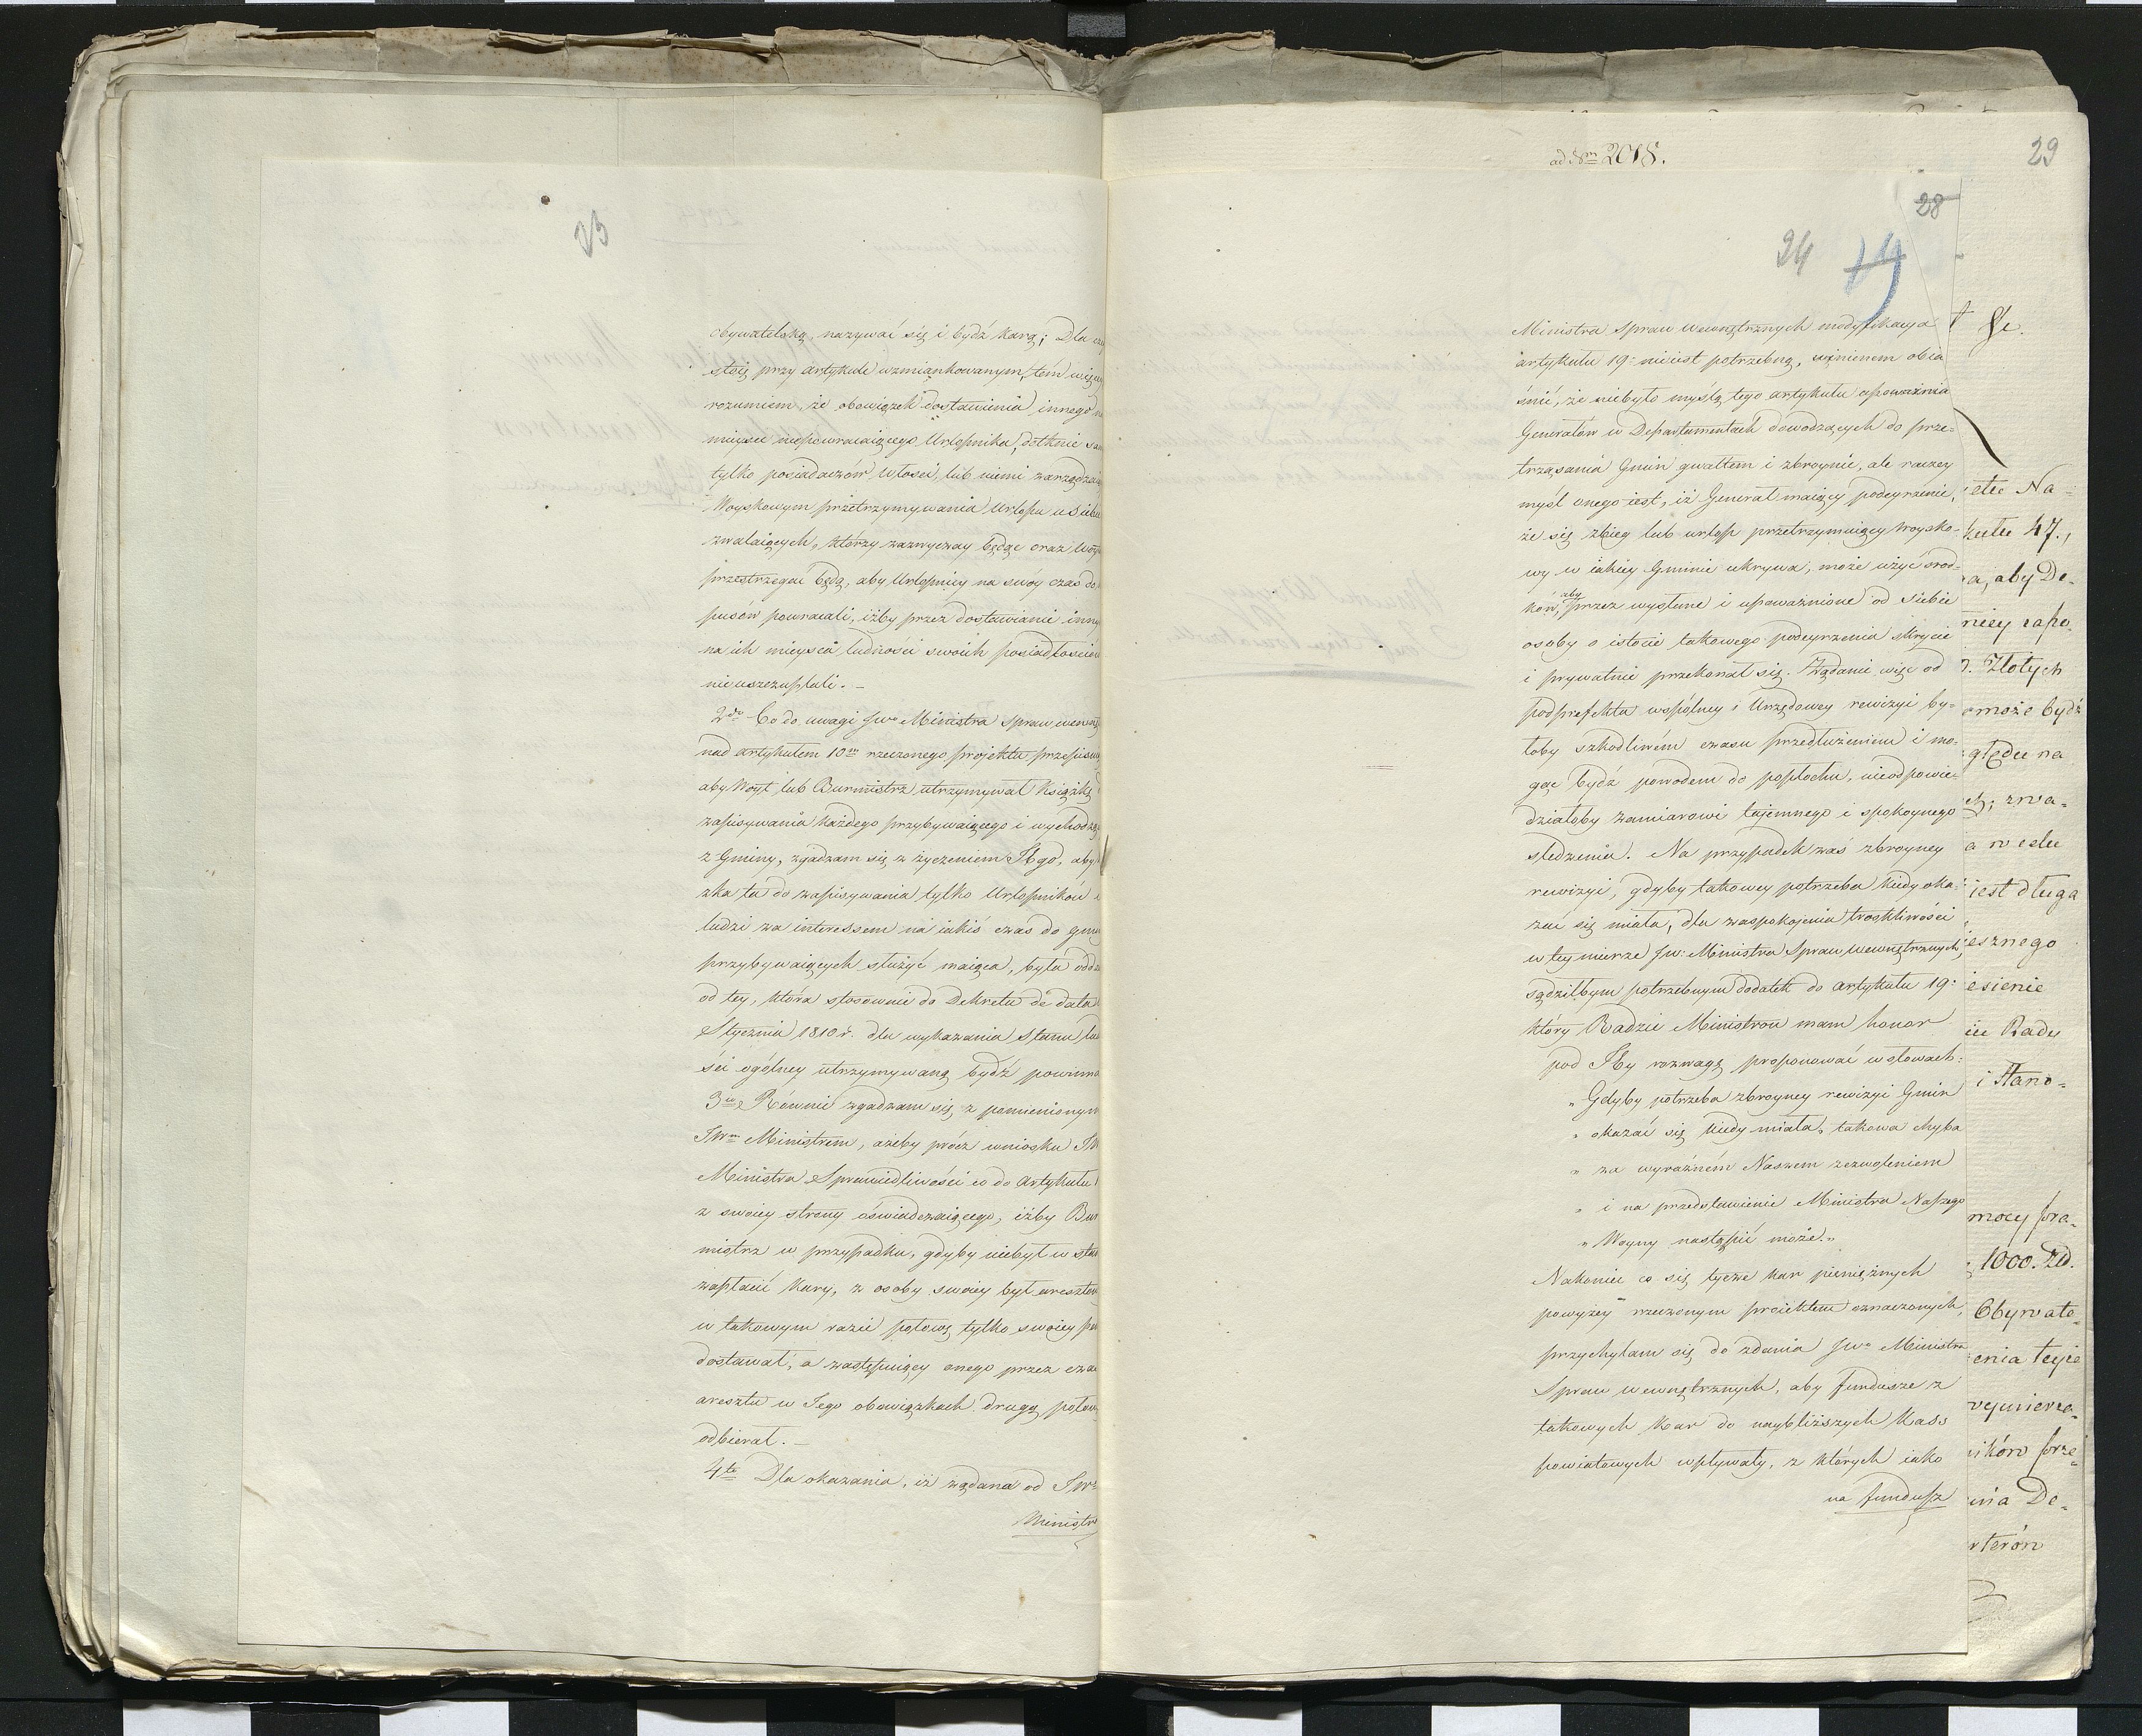 23
obywatelską, nazywać się i bydź karą; Dla
stoię przy artykule wzmiankowanym, tém więcey
rozumiem, że obowiązek dostawienia innego na
mieysce niepowracaiącego Urlopnika, dotknie
tylko posiadaczów włości, lub niemi zarządzai
Woyskowym przetrzymywania Urlopu u siebie
zwalaiących, którzy zazwyczay będąc oraz Woy
przestrzegać będą, aby Urlopnicy na swóy czas do
pusów powracali, iżby przez dostawianie inny
na ich mieysca ludności swoich posiadłości
nieuszczuplali. —
2do Co do uwagi JWo Ministra Spraw wewnę
nad artykułem 10m rzeczonego projektu przepisu
aby Woyt lub Burmistrz utrzymywał książkę
zapisywania każdego przybywaiącego i wychodzą
z Gminy, zgadzam się z życzeniem Jego, aby
żka ta do zapisywania tylko Urlopników i
ludzi za interessem na iakiś czas do gmi
przybywaiących służyć maiąca, była odd
od tey, która stosownie do Dekretu de dato
Stycznia 1810 r. dla wykazania stanu lud
ści ogólney utrzymywaną bydź powinna
3io Równie zgadzam się z pomienionym
JWm Ministrem, ażeby prócz wniosku JW
Ministra Sprawiedliwości co do Artykułu
z swoiey strony oświadczaiącego, iżby Bur
mistrz w przypadku, gdyby niebył w sta
zapłacić kary, z osoby swoiey był areszto
w takowym razie połowę tylko swoiey pł
dostawał, a zastępuiący onego przez cza
aresztu w Jego obowiązkach drugą połow
odbierał. —
4to Dla okazania, iż żądana od JWo
Ministra
ad Nrm 2018.
29
28
24
19
Ministra Spraw wewnętrznych modyfikacya
artykułu 19o nieiest potrzebną, winienem obia
śnić, że niebyło myślą tego artykułu upoważnia
Generałów w Departamentach dowodzących do prze=
trząsania Gmin gwałtem i zbroynie, ale raczey
myśl onego iest, iż Generał maiący podeyrzenie,
że się zbieg lub urlop przetrzymuiący woysko=
wy w iakiey Gminie ukrywa, może użyć środ=
ków, aby przez wysłane i upoważnione od siebie
osoby o istocie takowego podeyrzenia skrycie
i prywatnie przekonał się. Żądanie więc od
podprefekta wspólney i Urzędowey rewizyi by=
łoby szkodliwém czasu przedłużeniem i mo=
gąc bydź powodem do popłochu, nieodpowie=
działoby zamiarowi taiemnego i spokoynego
śledzenia. Na przypadek zaś zbroyney
rewizyi, gdyby takowey potrzeba kiedy oka=
zać się miała, dla zaspokojenia troskliwości
w tey mierze JWo Ministra Spraw wewnętrznych,
sądziłbym potrzebnym dodatek do artykułu 19o
który Radzie Ministrow mam honor
pod Jey rozwagę proponować w słowach:
„Gdyby potrzeba zbroyney rewizyi Gmin
„okazać się kiedy miała, takowa chyba
„za wyraźném Naszem zezwoleniem
„i na przedstawienie Ministra Naszego
„Woyny nastąpić może.„
Nakoniec co się tycze kar pieniężnych
powyżey rzeczonym proiektem oznaczonych,
przychylam się do zdania JWo Ministra
Spraw wewnętrznych, aby fundusze z
takowych kar do naybliższych Kass
powiatowych wpływały, z których iako
na fundusz
etu Na=
kułu 47.,
a, aby De=
niey rapo.
Złotych
może bydź
ględu na
ch; zwa=
a w celu
iest długa
esznego
esienie
Rady
i Stano=
mocy pra=
1000. Zł.
Obywate=
enia teyże
wymierza=
ików prze=
nia De=
rterón